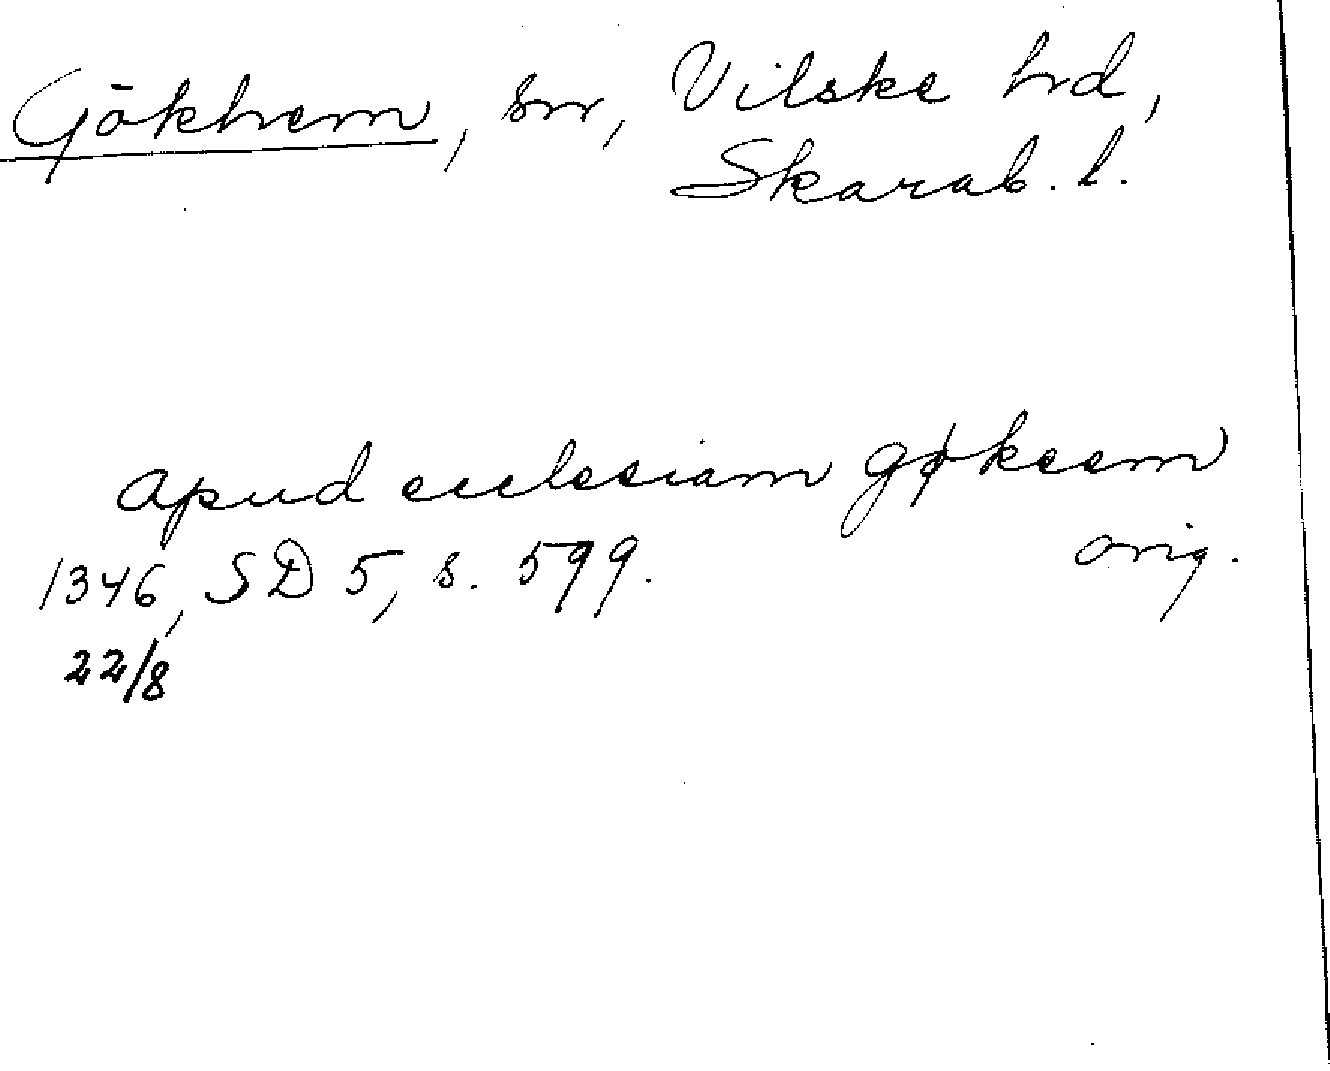 Gökhem, sn, Vilske hd,
Skarab. l.
apud ecclesiam gøkeem
1346, SD 5, s. 599. orig.
22/8